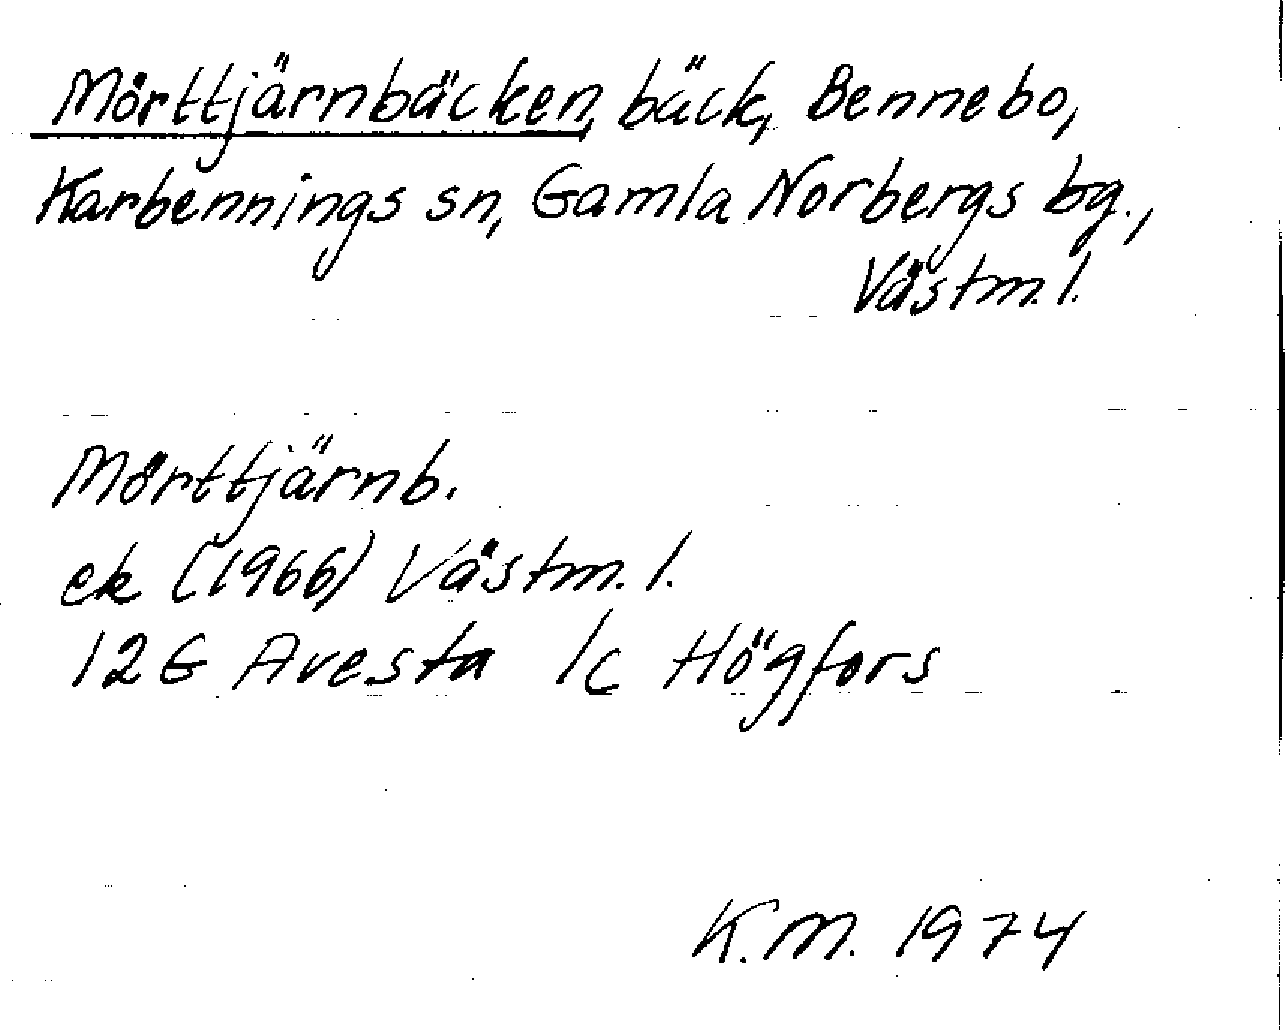 Mörttjärnbäcken, bäck, Bennebo,
Karbennings sn, Gamla Norbergs bg.,
Västm. l.
Mörttjärnb.
ek (1966) Västm. l.
12G Avesta 1c Högfors
K.M. 1974